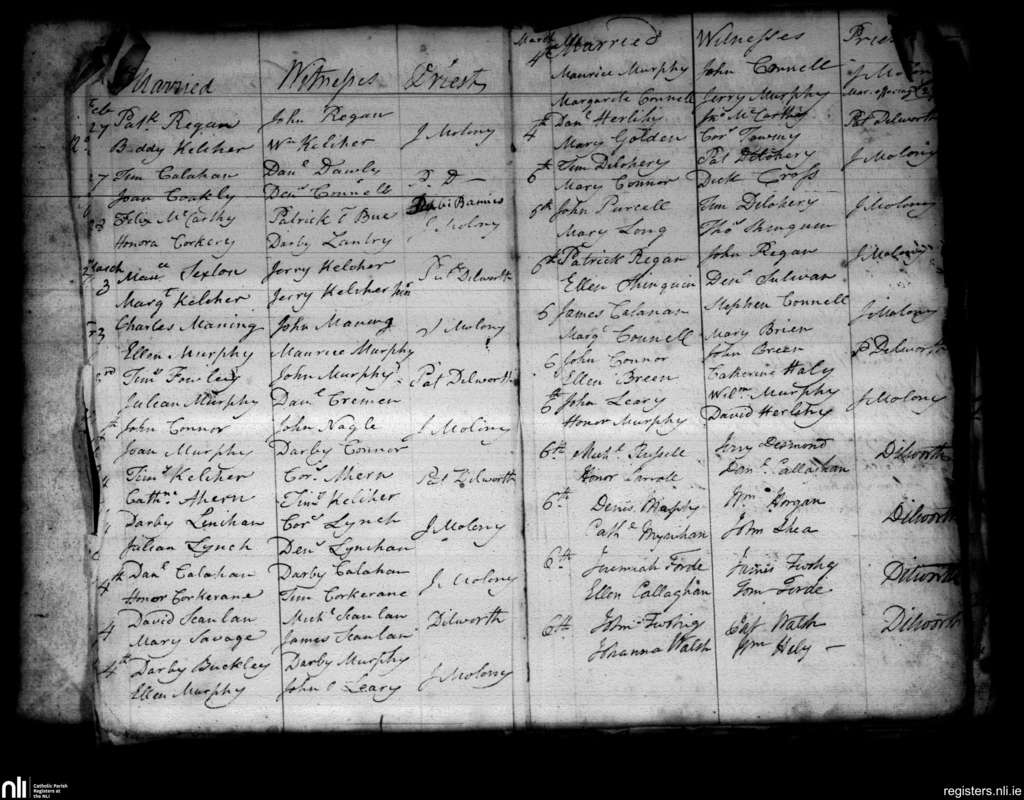 Married Witnesses Priest
Feb
27 Patk Regan John Regan J Molony
Biddy Kelcher Wm Kelcher
27 Tim Calahan Danl Dawly P. D —
Joan Coakly Dens Connell
23 Felix McCarthy Patrick Bue Barnies
Honora Corkery Darby Lantry J Molony
March
3 Maurce Sexton Jerry Kelcher Patk Dilworth
Margt Kelcher Jerry Kelcher
3 Charles Maning John Maning J Molony
Ellen Murphy Maurice Murphy
3rd Timy Fowley John Murphy Pat Dilworth
Julian Murphy Danl Cremen
John Connor John Nagle J Molony
Joan Murphy Darby Connor
Timy Kelcher Cors Ahern Pat Dilworth
Cathne Ahern Timy Kelcher
Darby Linihan Cors Lynch J Molony
Julian Lynch Dens Lynihan
4th Danl Calahan Darby Calahan J Molony
Honor Corkerane Tim Corkerane
4 David Scanlan Michl Scanlan Dilworth
Mary Savage James Scanlan
4th Darby Buckley Darby Murphy J Molony
Ellen Murphy John O Leary
March Married Witnesses Priest
4th Maurice Murphy John Connell J Molony
Margarite Connell Jerry Murphy
4th Danl Herlihy Jno McCarthy Pat Dilworth
Mary Golden Cors Twomy
6th Tim Dilohery Pat Dilohery J Molony
Mary Connor Dick Cross
6th John Purcell Tim Dilohery J Molony
Mary Long Thos Shinguin
6th Patrick Regan John Regan J Molony
Ellen Shinguin Dens Sulivan
6 James Calanan Stephen Connell J Molony
Margt Connell Mary Brien
6 John Connor John Breen P Dilworth
Ellen Breen Catherine Haly
6th John Leary Wilm Murphy J Molony
Honor Murphy David Herlihy
6th Michl Russell Jerry Desmond Dilworth
Honor Carroll Danl Callaghan
6th Denis Murphy Wm Horgan Dilworth
Cathe Mynihan John Shea
6th Jeremiah Forde James Twohig Dilworth
Ellen Callaghan Tom Forde
6th John Twohig Pat Walsh Dilworth
Hanna Walsh Wm Hely —
nli Catholic Parish
Registers at
the NLI
registers.nli.ie